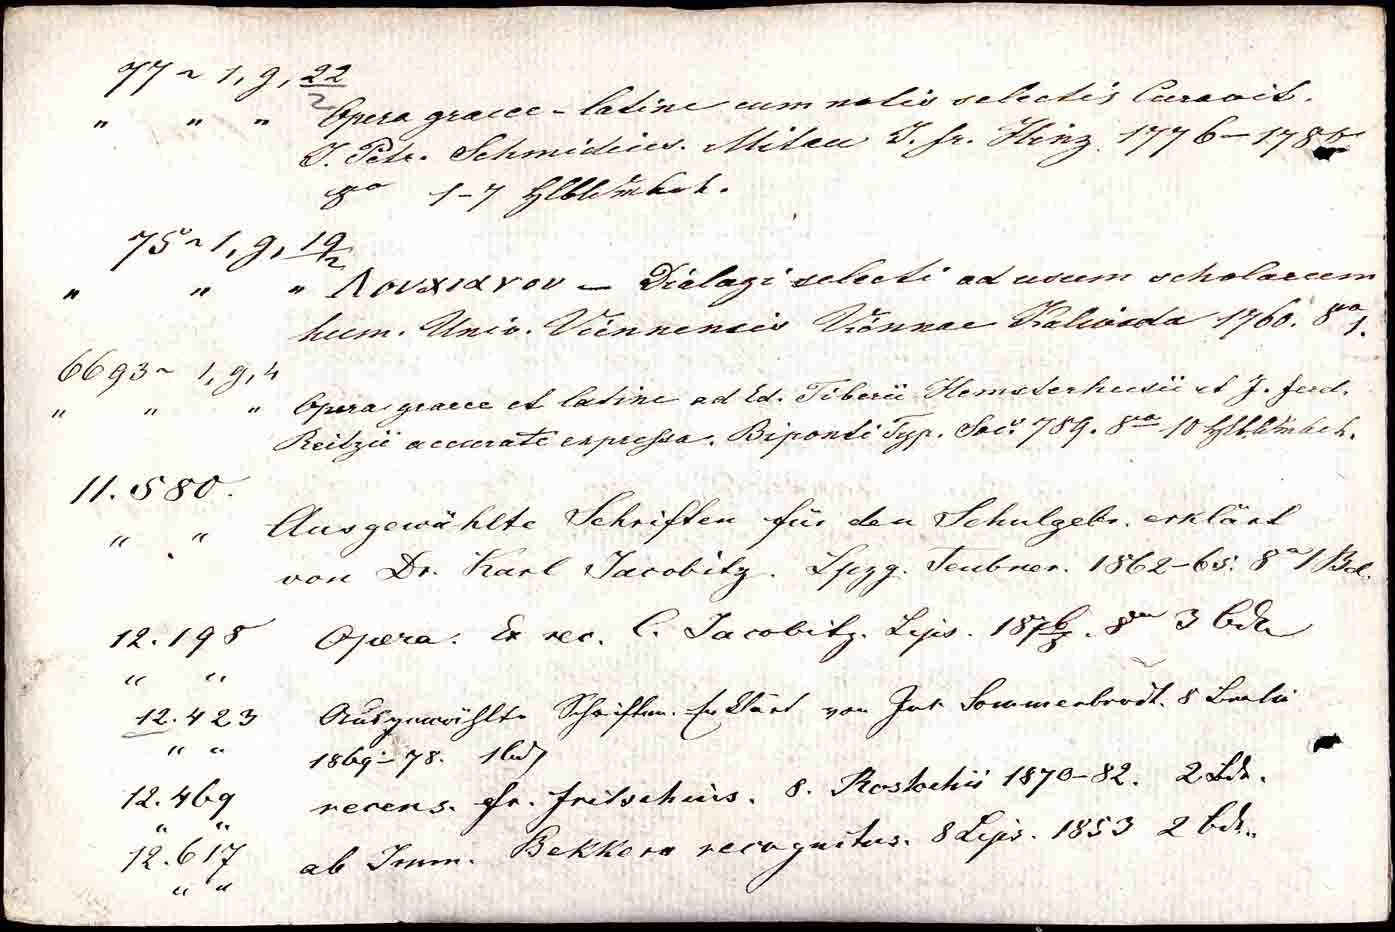 77 ~ 1, g, 22/2
" " " Opera graece-latine cum notis selectis Curavit.
J. Petr. Schmidius. Mitau J. Fr. Hinz. 1776-178
8vo 1-7
75 ~ 1, g, 19/2
" " " Λουκιανου — Dialogi selecti ad usum scholarum
hum. Univ. Viennensis Viennae Kaliwoda 1760. 8vo 1.
6693 ~ 1, g, 4
" " " Opera graece et latine ad Ed. Tiberii Hemsterhusii et J. Fred.
Reitzii accurate expressa. Biponti Typ. Soc. 789. 8vo 10
11.580.
" " Ausgewählte Schriften für den Schulgebr. erklärt
von Dr. Karl Jacobitz. Lpzg. Teubner. 1862-65. 8o 1 Bd.
12.198 Opera. Ex rec. C. Jacobitz. Lips. 187 8o 3 bde
" "
12.423 Ausgewählte Schriften. Erklärt von Jul. Sommerbrodt. 8 Berlin
" " 1869-78. 1 bd
12.469 recens. Fr. Fritschius. 8. Rostochii 1870-82. 2 Bde.
" "
12.617 ab Imm. Bekkero recognitus. 8 Lips. 1853 2 bde.
" "